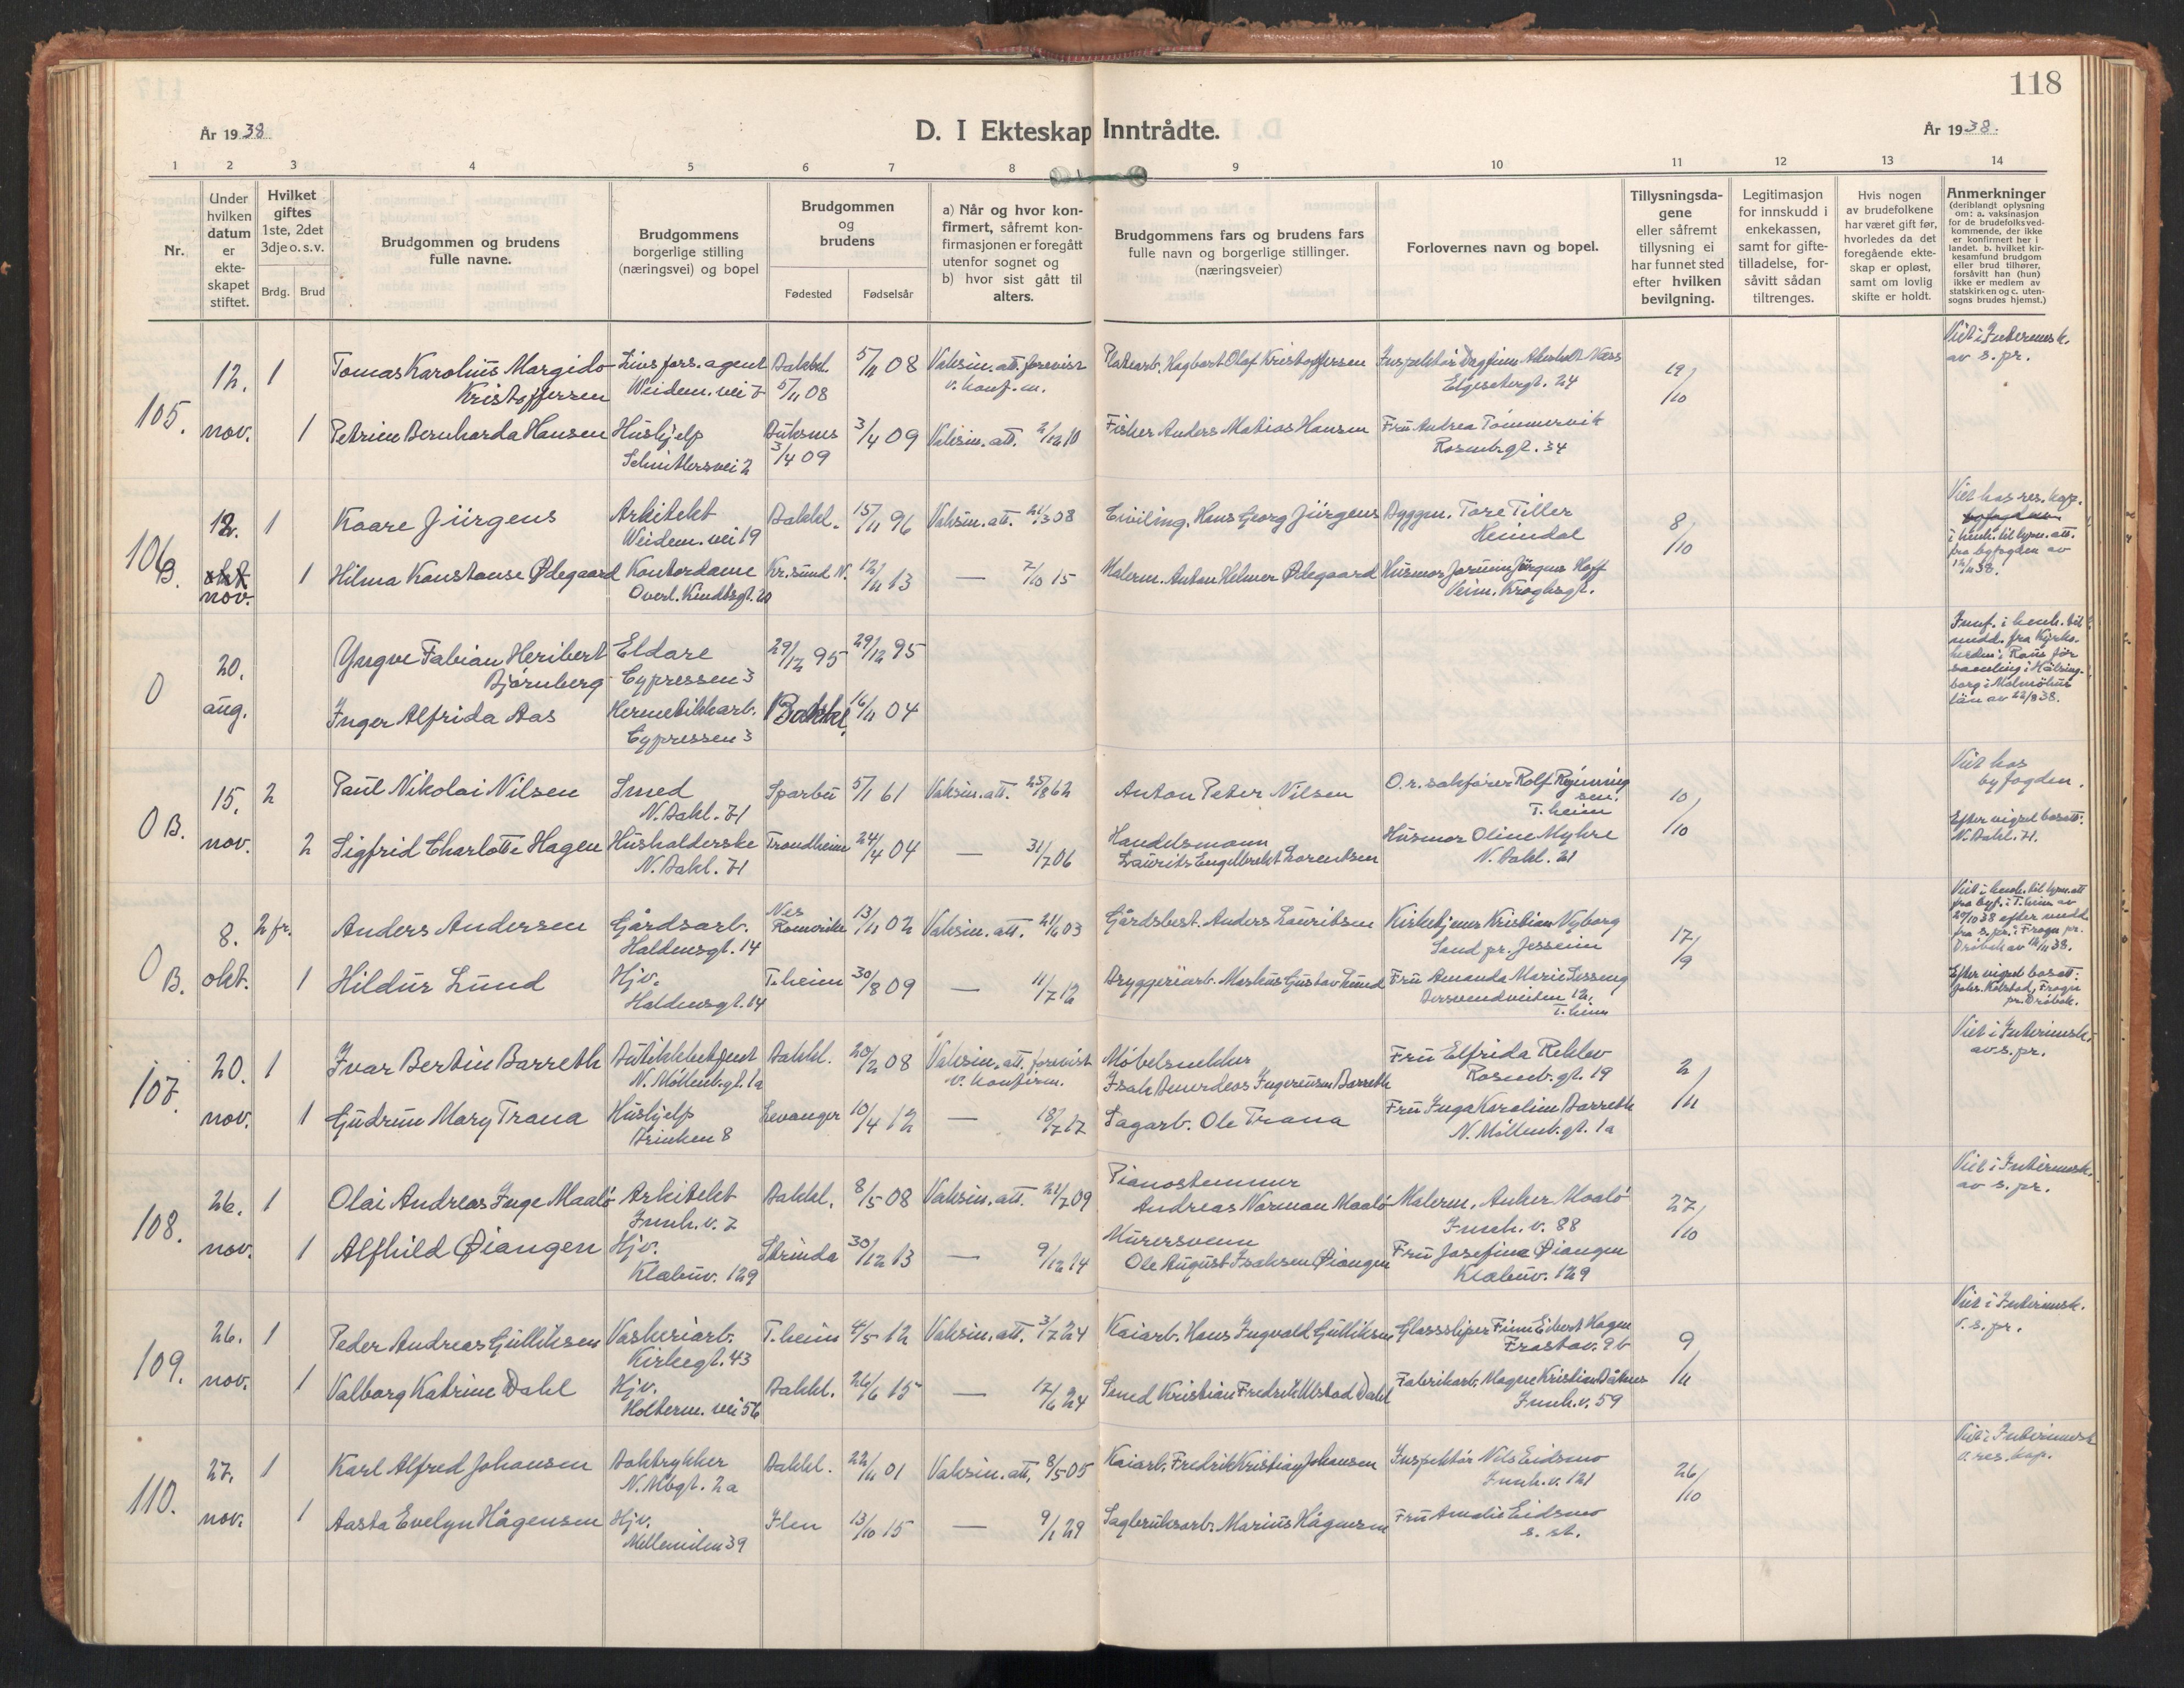 118
År 1938.
D. I Ekteskap Inntrådte.
År 1938.
1 2 3 4 5 6 7 8 9 10 11 12 13 14
Nr.
Under hvilken datum er ekte-skapet stiftet.
Hvilket giftes 1ste, 2det 3dje o. s. v.
Brdg. Brud
Brudgommen og brudens fulle navne.
Brudgommens borgerlige stilling (næringsvei) og bopel
Brudgommen og brudens
Fødested Fødselsår
a) Når og hvor kon-firmert, såfremt kon-firmasjonen er foregått utenfor sognet og
b) hvor sist gått til alters.
Brudgommens fars og brudens fars fulle navn og borgerlige stillinger. (næringsveier)
Forlovernes navn og bopel.
Tillysningsda-gene eller såfremt tillysning ei har funnet sted efter hvilken bevilgning.
Legitimasjon for innskudd i enkekassen, samt for gifte-tilladelse, for-såvitt sådan tiltrenges.
Hvis nogen av brudefolkene har været gift før, hvorledes da det foregående ekte-skap er opløst, samt om lovlig skifte er holdt.
Anmerkninger (deriblandt oplysning om: a. vaksinasjon for de brudefolks ved-kommende, der ikke er konfirmert her i landet. b. hvilket kir-kesamfund brudgom eller brud tilhører, forsåvitt han (hun) ikke er medlem av statskirken og c. uten-sogns brudes hjemst.)
105. 12. nov. 1
Tomas Karolius Margido Kristoffersen
Livsfors. agent Weidem. vei 7
Bakkl. 5/11 08
5/11 08
Vaksin. att. forevist v. konf. m.
Platearb. Hagbart Olaf Kristoffersen
Inspektør Dagfinn Næss Elgesetergt. 24
19/10
Viet i Interimsk. av s. pr.
1 Petrine Bernharda Hansen
Hushjelp Schultersvei 2
Buksnes 3/4 09
3/4 09
Vaksin. att. 2/12 10
Fisker Anders Matias Hansen
Fru Andrea Tømmervik Rosenb.gt. 34
106 B. 12. okt nov. 1
Kaare Jürgens
Arkitekt Weidem. vei 19
Bakkl. 15/11 96
Vaksin. att. 21/3 08
Civiling. Hans Georg Jürgens
Byggm. Tore Tiller Heimdal
8/10
Viet hos res. kap. byfogden i henh. til lysn. att. fra byfogden av 12/11 38.
1 Hilma Konstanse Ødegaard
Kontordame Overl. Kindtsgt. 20
Kr.sund N. 12/11 13
— 7/10 15
Malerm. Anton Helmer Ødegaard
Husmor Jorunn Jürgens Hoff Veim. Kroghsgt.
0 20. aug.
Yngve Fabian Heribert Bjørnberg
Eldare Cypressen 3
29/12 95 29/12 95
Innf. i henh. til medd. fra Kyrko-herden i Raus för samling i Hälsing-borg i Malmöhus län av 22/8 38.
Inger Alfrida Aas
Hermetikkarb. Cypressen 3
Bakkl. 16/11 04
0 B. 15. nov. 2
Paul Nikolai Nilsen
Smed N. Bakl. 71
Sparbu 5/1 61
Vaksin. att. 25/8 62
Anton Peter Nilsen
O.r. sakfører Rolf Rynning sen. T.heim
10/10
Viet hos byfogden.
2 Sigfrid Charlotte Hagen
Husholderske N. Bakl. 71
Trondheim 24/4 04
— 31/7 06
Handelsmann Laurits Engelbrekt Lorentsen
Husmor Oline Myhre N. Bakl. 21
Efter vigsel bosatt: N. Bakl. 71.
0 B. 8. okt. 2 fr.
Anders Andersen
Gårdsarb. Haldensgt. 14
Nes Romerike 13/11 02
Vaksin. att. 21/6 03
Gårdsbest. Anders Lauritsen
Kirketjener Kristian Nyborg Sand pr. Jessheim
17/9
Viet i henh. til lysn. att fra byf. i T.heim av 20/10 38 efter medd. fra s. pr. i Frogn pr. Drøbak av 14/11 38.
1 Hildur Lund
Hjv. Haldensgt. 14
T.heim 30/8 09
— 11/7 12
Bryggeriarb. Markus Gustav Lund
Fru Amanda Marie Lesseng Bersvendveiten 12. T.heim
Efter vigsel bosatt: Frogn pr. Drøbak.
107. 20. nov. 1
Ivar Bertin Barreth
Butikkbetjent N. Møllenb.gt. 1a
Bakkl. 20/2 08
Vaksin. att. forevist v. konfirm.
Møbelsnekker Isak Amerdeos Ingerensen Barreth
Fru Elfrida Rekkev Rosenb. gt. 19
2/11
Viet i Interimsk. av s. pr.
1 Gudrun Mary Trana
Hushjelp Brinken 8
Levanger 10/4 12
— 18/7 17
Sagarb. Ole Trana
Fru Inga Karoline Barreth N. Møllenb. gt. 1a
108. 26. nov. 1
Olai Andreas Inge Maalø
Arkitekt Innh. v. 7
Bakkl. 8/5 08
Vaksin. att. 21/7 09
Pianostemmer Andreas Norman Maalø
Malerm. Anker Maalø Innh. v. 88
27/10
Viet i Interimsk. av s. pr.
1 Alfhild Øiangen
Hjv. Klæbuv. 129
Strinda 30/12 13
— 9/12 14
Murersvenn Ole August Isaksen Øiangen
Fru Josefine Øiangen Klæbuv. 129
109. 26. nov. 1
Peder Andreas Gulliksen
Vaskeriarb. Kirkegt. 43
T.heim 4/5 12
Vaksin. att. 3/7 24
Kaiarb. Hans Ingvald Gulliksen
Glassliper Finn Eibert Hagen Frostav. 9b
9/11
Viet i Interimsk. v. s. pr.
1 Valborg Katrine Dahl
Hjv. Holterm. vei 56
Bakkl. 26/6 15
— 17/6 24
Smed Kristian Fredrik Ulstad Dahl
Fabrikarb. Magne Kristian Båtnes Innh. v. 59
110. 27. nov. 1
Karl Alfred Johansen
Boktrykker N. Mbgt. 2a
Bakkl. 22/11 01
Vaksin. att. 8/5 05
Kaiarb. Fredrik Kristian Johansen
Inspektør Nils Eidsmo Innh. v. 121
26/10
Viet i Interimsk a res. kap.
1 Aasta Evelyn Hågensen
Hjv. Mellemilen 39
Ilen 13/10 15
— 9/1 29
Sagbruksarb. Marius Hågensen
Fru Amalie Eidsmo s. st.